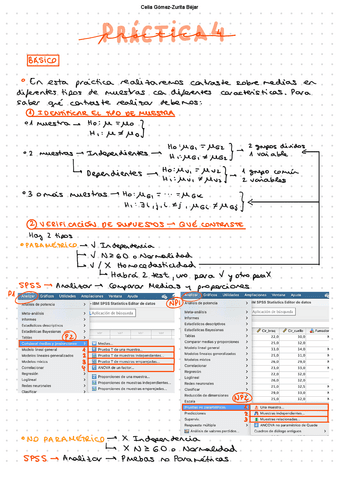 Celia Gómez-Zurita Béjar
PRÁCTICA 4
BÁSICO
En esta práctica realizaremos contraste sobre medias en
diferentes tipos de muestras con diferentes características. Para
saber qué contraste realizar debemos:
① IDENTIFICAR EL TIPO DE MUESTRA
1 muestra → H0: μ = μ0
H1: μ ≠ μ0
2 muestras → Independientes → H0: μG1 = μG2 → 2 grupos distintos
H1: μG1 ≠ μG2 1 variable
Dependientes → H0: μV1 = μV2 → 1 grupo común
H1: μV1 ≠ μV2 2 variables
3 o más muestras → H0: μG1 = ... = μGK
H1: ∃ i, j, i ≠ j, μGi ≠ μGj
② VERIFICACIÓN DE SUPUESTOS → QUÉ CONTRASTE
Hay 2 tipos
PARAMÉTRICO → √ Independencia
√ N≥60 o Normalidad
√/X Homocedasticidad
Habrá 2 test, uno para √ y otro para X
SPSS → Analizar → Comparar Medias y proporciones
P1
Analizar Gráficos Utilidades Ampliaciones Ventana Ayuda
IBM SPSS Statistics Editor de datos
Aplicación de búsqueda
Análisis de potencia
Meta-análisis
Informes
Estadísticos descriptivos
Estadísticas Bayesianas
Tablas
P2
Comparar medias y proporciones
Modelo lineal general
Modelos lineales generalizados
Modelos mixtos
Correlacionar
Regresión
Loglineal
Redes neuronales
Clasificar
Medias...
Prueba T de una muestra...
Prueba T de muestras independientes...
Prueba T de muestras relacionadas...
ANOVA de un factor...
Proporciones de una muestra...
Proporciones de muestras independientes...
Proporciones de muestras emparejadas...
NP1
Analizar Gráficos Utilidades Ampliaciones Ventana Ayuda
IBM SPSS Statistics Editor de datos
Aplicación de búsqueda
Análisis de potencia
Meta-análisis
Informes
Estadísticos descriptivos
Estadísticas Bayesianas
Tablas
Comparar medias y proporciones
Modelo lineal general
Modelos lineales generalizados
Modelos mixtos
Correlacionar
Regresión
Loglineal
Redes neuronales
Clasificar
Reducción de dimensiones
Escala
NP2
Pruebas no paramétricas
Predicciones
Supervivencia
Respuesta múltiple
Una muestra...
Muestras independientes...
Muestras relacionadas...
ANCOVA no paramétrico de Quade
Cuadros de diálogo antiguos
NO PARAMÉTRICO → X Independencia
X N≥60 o Normalidad
SPSS → Analizar → Pruebas no Paramétricas